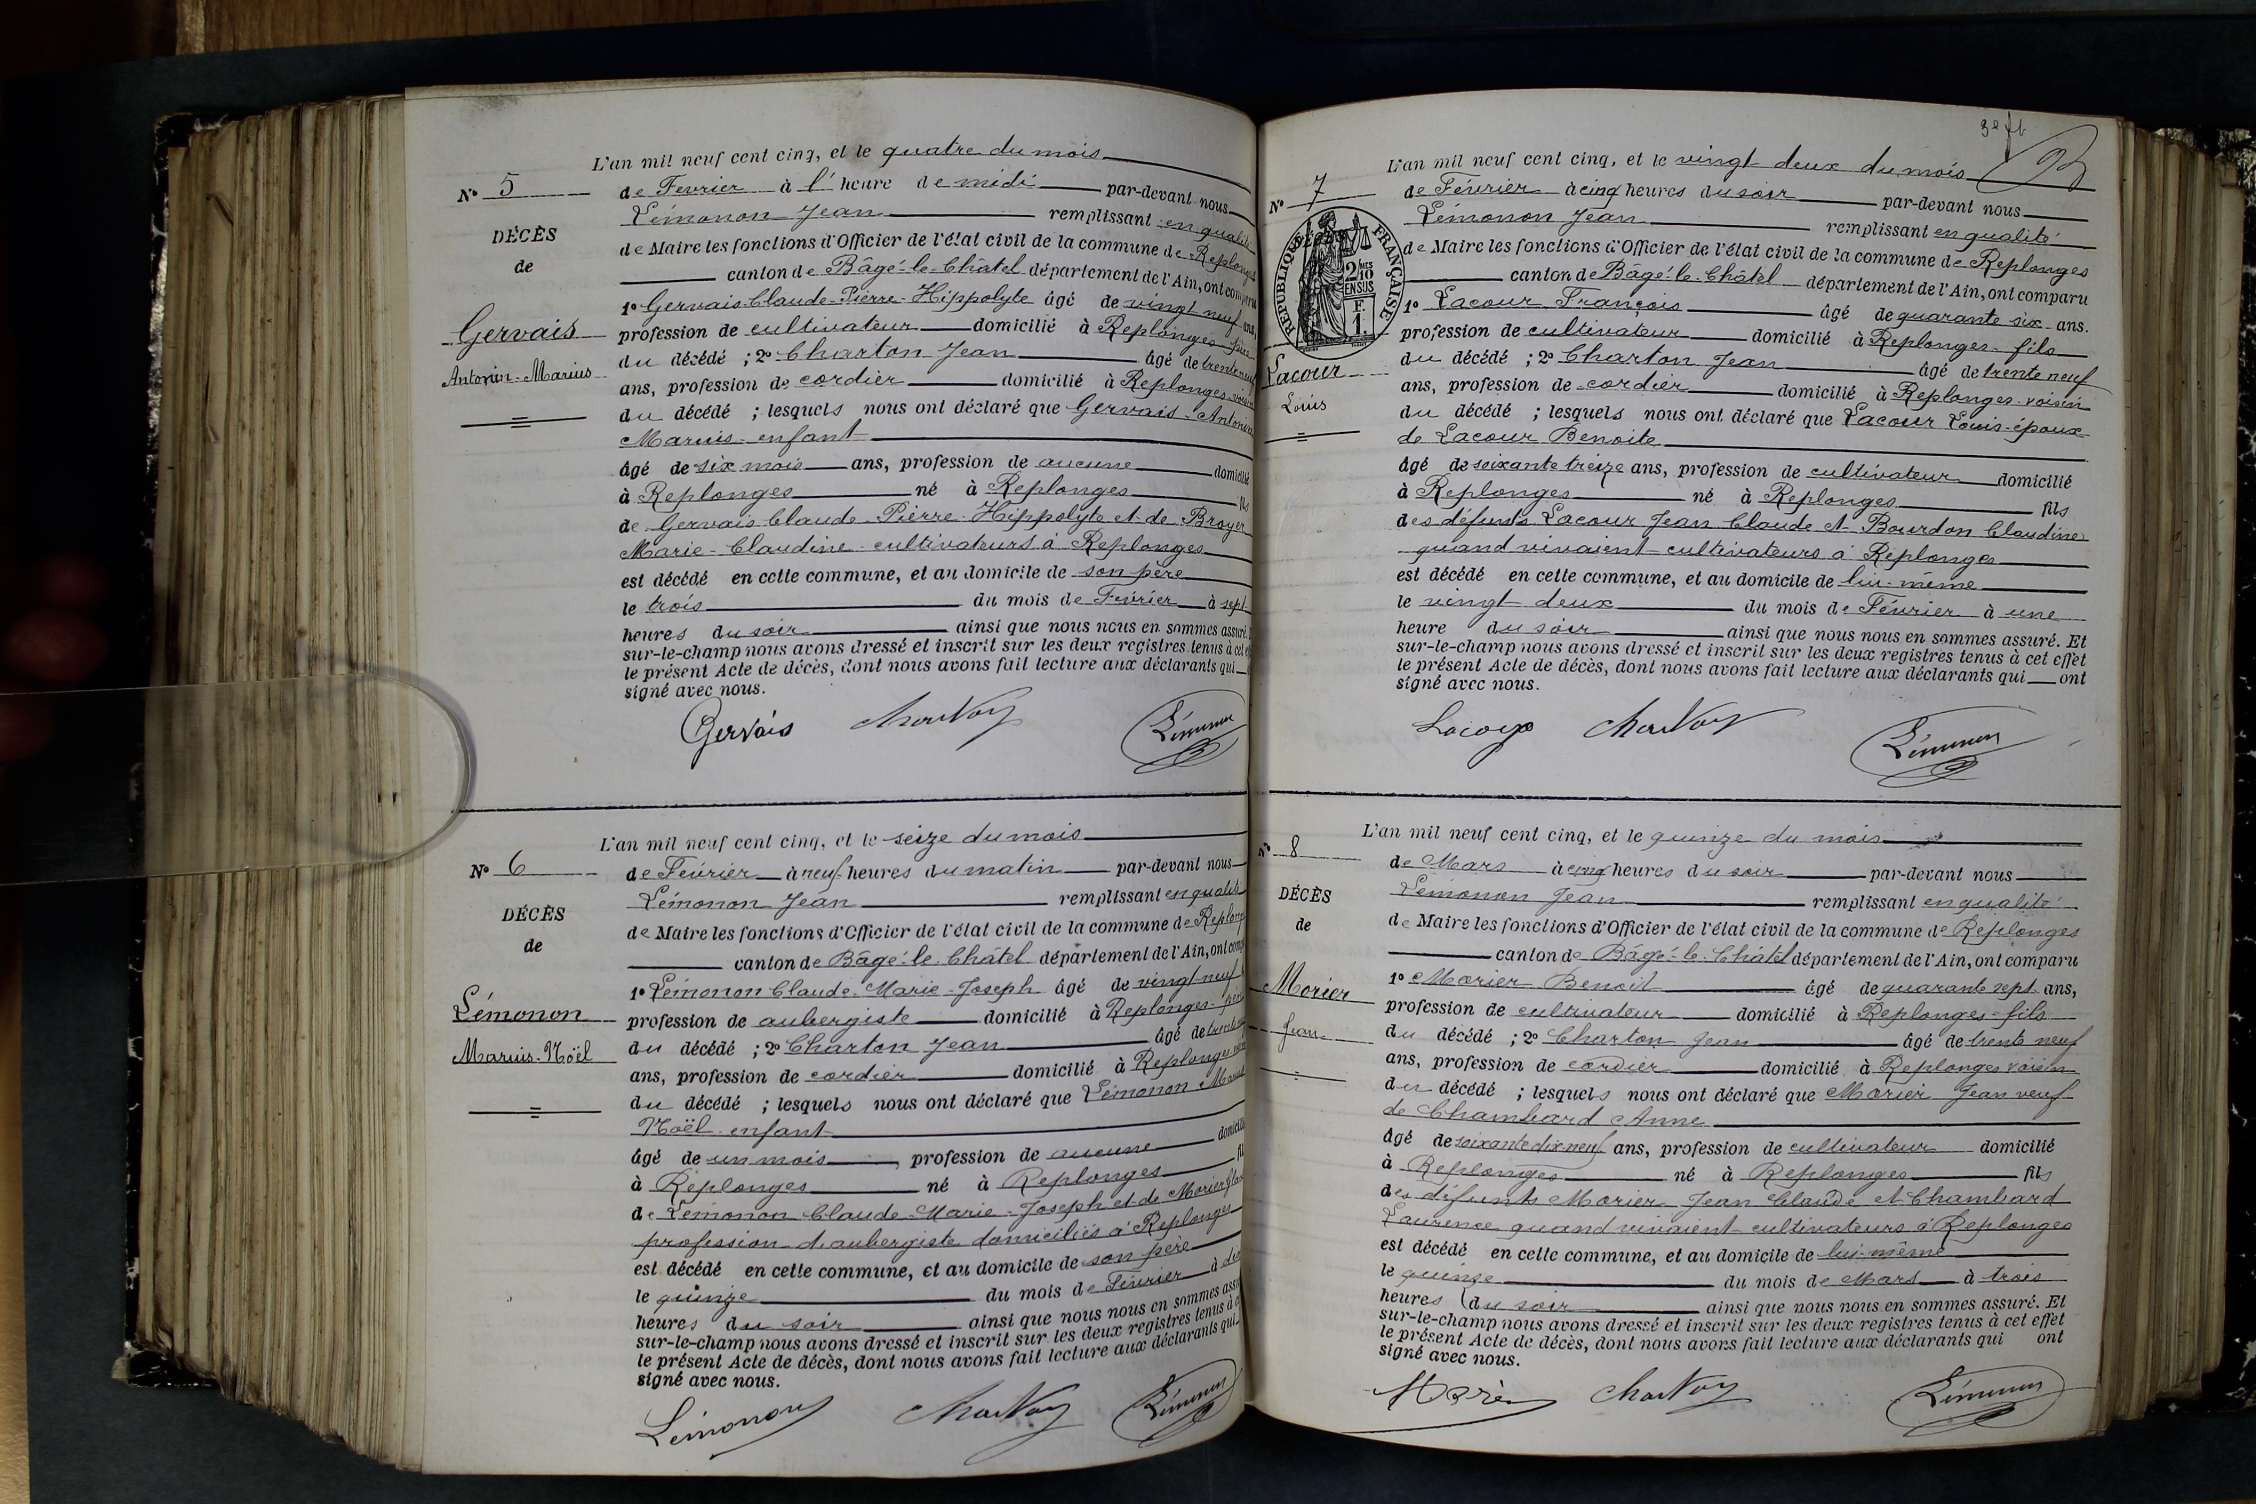 L'an mil neuf cent cinq, et le quatre du mois
Nº 5
de Fevrier à l'heure de midi par-devant nous
Lémonon Jean remplissant en qualité
DÉCÈS
de Maire les fonctions d'Officier de l'état civil de la commune de Replonges
de
canton de Bâgé-le-Châtel département de l'Ain, ont comparu
1º Gervais Claude-Pierre-Hippolyte âgé de vingt neuf ans,
Gervais
profession de cultivateur domicilié à Replonges père
du décédé ; 2º Charton Jean âgé de trente neuf
Antonin-Marius
ans, profession de cordier domicilié à Replonges voisin
du décédé ; lesquels nous ont déclaré que Gervais Antonin
Marius enfant
âgé de six mois ans, profession de aucune domicilié
à Replonges né à Replonges fils
de Gervais Claude-Pierre-Hippolyte et de Broyer
Marie-Claudine cultivateurs à Replonges
est décédé en cette commune, et au domicile de son père
le trois du mois de Février à sept
heures du soir ainsi que nous nous en sommes assuré.
sur-le-champ nous avons dressé et inscrit sur les deux registres tenus à cet
le présent Acte de décès, dont nous avons fait lecture aux déclarants qui
signé avec nous.
Gervais Charton Lémonon
L'an mil neuf cent cinq, et le seize du mois
Nº 6
de Février à neuf heures du matin par-devant nous
Lémonon Jean remplissant en qualité
DÉCÈS
de Maire les fonctions d'Officier de l'état civil de la commune de Replonges
de
canton de Bâgé-le-Châtel département de l'Ain, ont
1º Lémonon Claude-Marie-Joseph âgé de vingt neuf
Lémonon
profession de aubergiste domicilié à Replonges père
du décédé ; 2º Charton Jean âgé de
Marius-Noël
ans, profession de cordier domicilié à Replonges
du décédé ; lesquels nous ont déclaré que Lémonon Marius
Noël enfant
âgé de un mois, profession de aucune domicilié
à Replonges né à Replonges
de Lémonon Claude-Marie-Joseph et de Morier
profession d'aubergiste domiciliés à Replonges
est décédé en cette commune, et au domicile de son père
le quinze du mois de Février à
heures du soir ainsi que nous nous en sommes
sur-le-champ nous avons dressé et inscrit sur les deux registres tenus à
le présent Acte de décès, dont nous avons fait lecture aux déclarants qui
signé avec nous.
Lémonon Charton Lémonon
L'an mil neuf cent cinq, et le vingt-deux du mois
Nº 7
de Février à cinq heures du soir par-devant nous
Lémonon Jean remplissant en qualité
RÉPUBLIQUE FRANÇAISE
2 MES 10 EN SUS
F. 1.
de Maire les fonctions d'Officier de l'état civil de la commune de Replonges
canton de Bâgé-le-Châtel département de l'Ain, ont comparu
1º Lacour François âgé de quarante six ans.
profession de cultivateur domicilié à Replonges fils
Lacour
du décédé ; 2º Charton Jean âgé de trente neuf
ans, profession de cordier domicilié à Replonges voisin
Louis
du décédé ; lesquels nous ont déclaré que Lacour Louis époux
de Lacour Benoite
âgé de soixante treize ans, profession de cultivateur domicilié
à Replonges né à Replonges fils
des défunts Lacour Jean Claude et Bourdon Claudine
quand vivaient cultivateurs à Replonges
est décédé en cette commune, et au domicile de lui-même
le vingt deux du mois de Février à une
heure du soir ainsi que nous nous en sommes assuré. Et
sur-le-champ nous avons dressé et inscrit sur les deux registres tenus à cet effet
le présent Acte de décès, dont nous avons fait lecture aux déclarants qui ont
signé avec nous.
Charton Lémonon
L'an mil neuf cent cinq, et le quinze du mois
Nº 8
de Mars à cinq heures du soir par-devant nous
DÉCÈS
Lémonon Jean remplissant en qualité
de
de Maire les fonctions d'Officier de l'état civil de la commune de Replonges
canton de Bâgé-le-Châtel département de l'Ain, ont comparu
Morier
1º Morier Benoit âgé de quarante sept ans,
profession de cultivateur domicilié à Replonges fils
Jean
du décédé ; 2º Charton Jean âgé de trente neuf
ans, profession de cordier domicilié à Replonges voisin
du décédé ; lesquels nous ont déclaré que Morier Jean veuf
de Chambard Anne
âgé de soixante dix neuf ans, profession de cultivateur domicilié
à Replonges né à Replonges fils
des défunts Morier Jean Claude et Chambard
Laurence quand vivaient cultivateurs à Replonges
est décédé en cette commune, et au domicile de lui-même
le quinze du mois de Mars à trois
heures du soir ainsi que nous nous en sommes assuré. Et
sur-le-champ nous avons dressé et inscrit sur les deux registres tenus à cet effet
le présent Acte de décès, dont nous avons fait lecture aux déclarants qui ont
signé avec nous.
Charton Lémonon